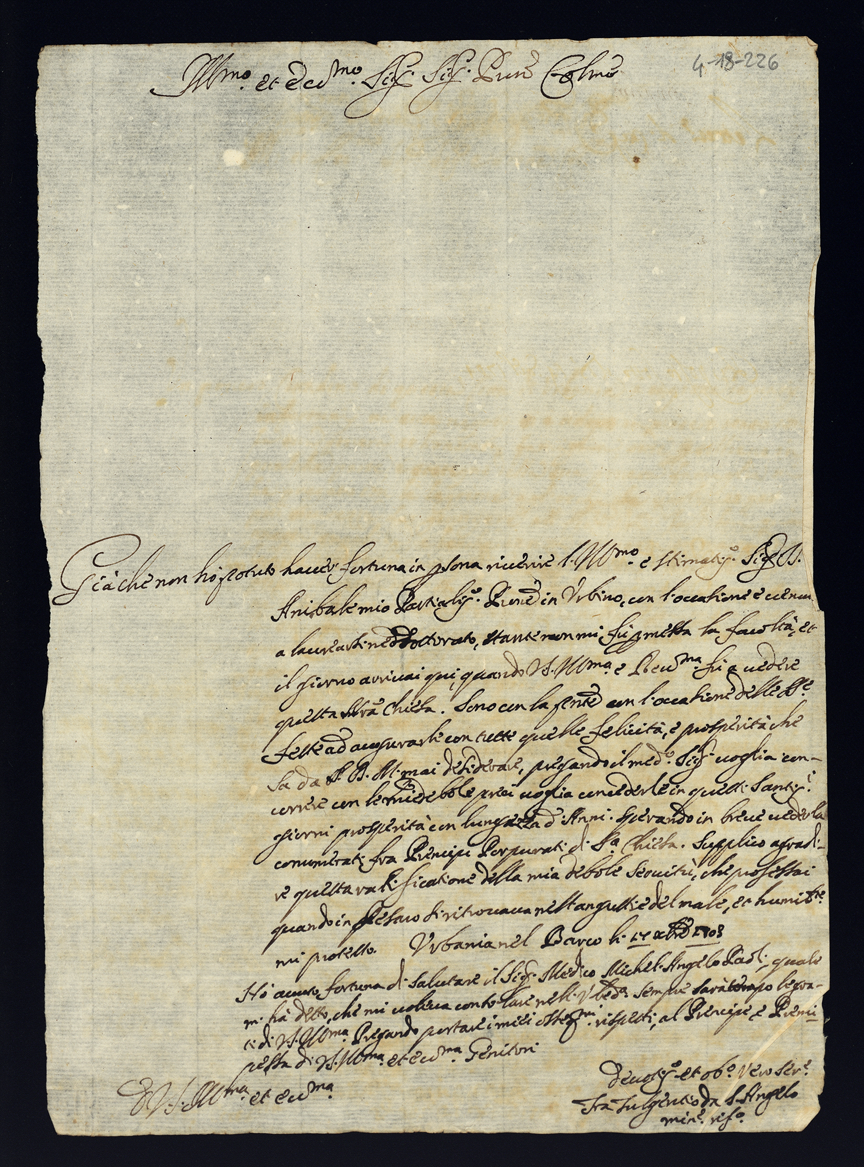 4-18-226
Ill.mo et Ecc.mo Sig.r Sig.r Pron Colmo
Già che non hò potuto haver fortuna in psona riverire l'Ill.mo e stimatis.o Sig.r D.
Anibale mio Partialis.o Prone in Urbino, con l'occasione è venuto
a laurearsi nel Dottorato, stante non mi fù pmessa la facoltà, et
il giorno arrivai qui, quando V.S. Ill.ma e Recc.ma fù a vedere
questa nrã Chiesa. Sono con la pnte con l'occasione delle SS.e
feste ad augurarle con tutte quelle felicità, e prosperità che
sa da S. B. M. mai desiderare, pregando il med.o Sig.r voglia con-
correre con le mie debole preci voglia concederle in questi Santis.i
giorni prosperità con lunghezza d'Anni. Sperando in breve vederla
conumerati fra Prencipi Porpurati di S.a Chiesa. Supplico agradi-
re questa ratificatione della mia debole Servitù, che professai
quando in Pesaro si ritrovava nell'angustie del male, et humilte.
mi protesto. Urbania nel Barco li 17 xbre 1708
Hò avuto fortuna di salutare il Sig.r Medico Michel: Angelo Paoli, quale
m'hà detto, che mi voleva condolare nell' sempre sarà tempo le gra-
tie di V.S. Ill.ma Pregando portare i miei osseq.mi rispetti, al Prencipe e Prenci-
pessa di V.S. Ill.ma et Ecc.ma Genitori
Di V.S. Ill.ma et Ecc.ma
Devotis.o et obb.o Vero Ser.e
Fra Fulgentio da S. Angelo
min.e rif.o